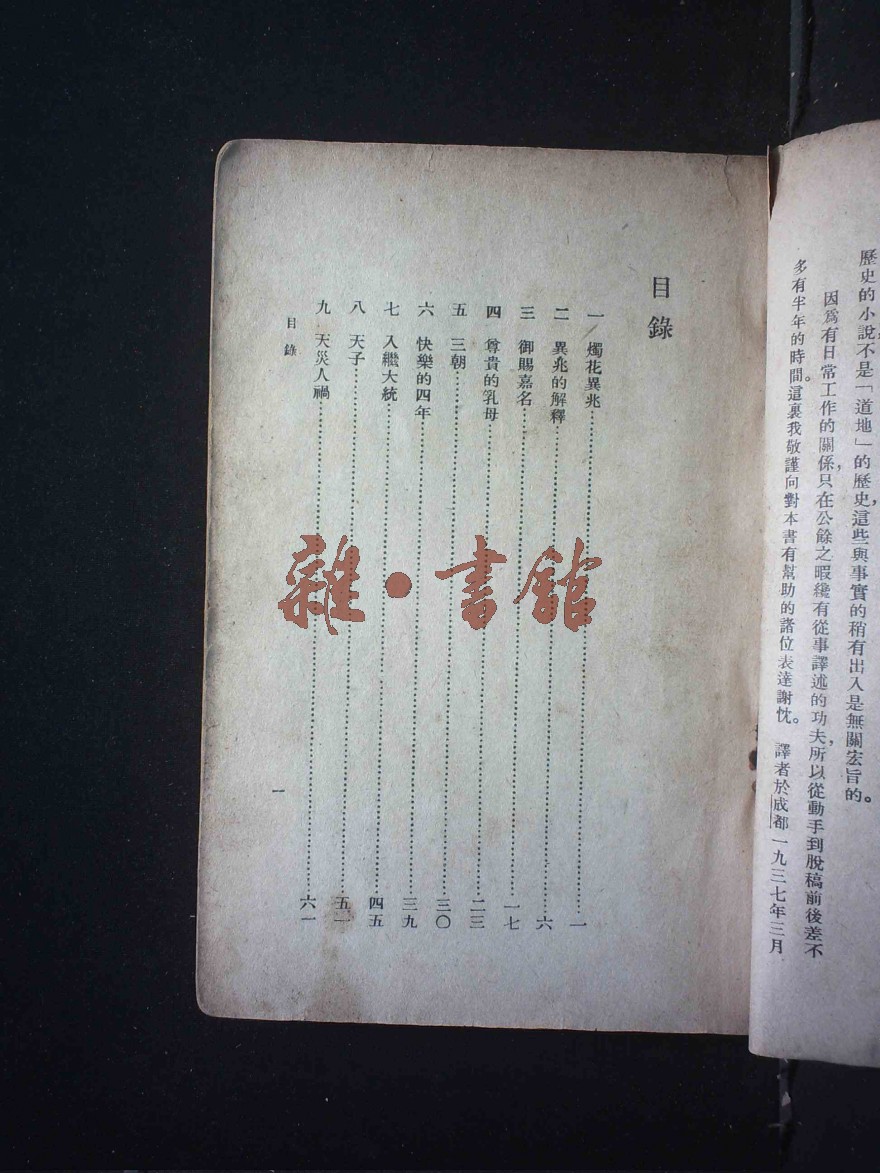 歷史的小說不是「道地」的歷史,這些與事實的稍有出入是無關宏旨的。
因爲有日常工作的關係,只在公餘之暇纔有從事譯述的功夫,所以從動手到脫稿前後差不
多有半年的時間。這裏我敬謹向對本書有幫助的諸位表達謝忱。 譯者於成都 一九三七年三月
目錄
一 燭花異兆…………一
二 異兆的解釋…………六
三 御賜嘉名…………一七
四 尊貴的乳母…………二三
五 三朝…………三〇
六 快樂的四年…………三九
七 入繼大統…………四五
八 天子…………五一
九 天災人禍…………六一
目錄
一
雜·書館